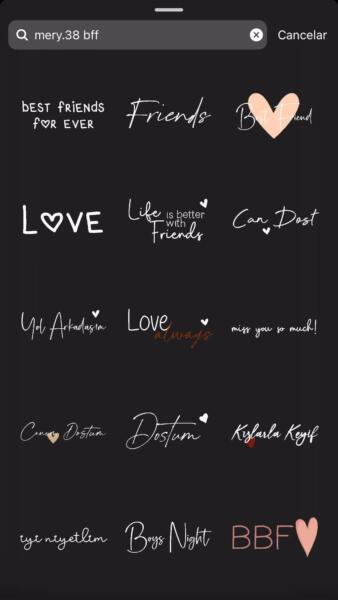 mery.38 bff
Cancelar
BEST FRIENDS
FOR EVER
Friends
Best Friend
LOVE
Life is better
with
Friends
Can Dost
Yol Arkadaşım
Love
always
miss you so much!
Canım Dostum
Dostum
Kızlarla Keyif
iyi niyetlim
Boys Night
BBF